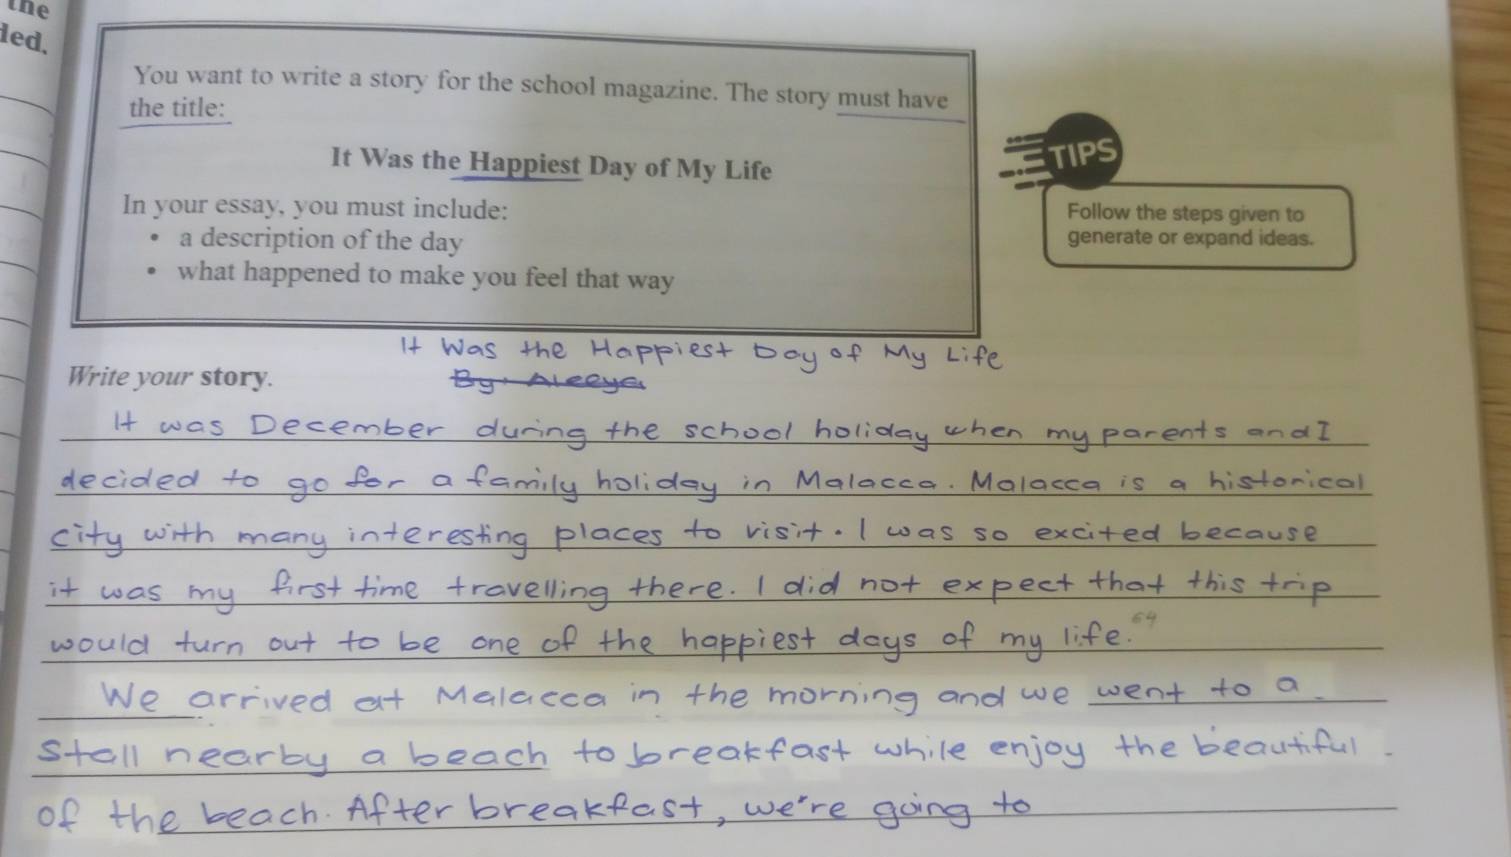 the
ded.
You want to write a story for the school magazine. The story must have
the title:
It Was the Happiest Day of My Life
In your essay, you must include:
• a description of the day
• what happened to make you feel that way
TIPS
Follow the steps given to
generate or expand ideas.
It Was the Happiest Day of My Life
Write your story.
By: Aleeya
It was December during the school holiday when my parents and I
decided to go for a family holiday in Malacca. Malacca is a historical
city with many interesting places to visit. I was so excited because
it was my first time travelling there. I did not expect that this trip
would turn out to be one of the happiest days of my life. 64
We arrived at Malacca in the morning and we went to a
stall nearby a beach to breakfast while enjoy the beautiful
of the beach. After breakfast, we're going to